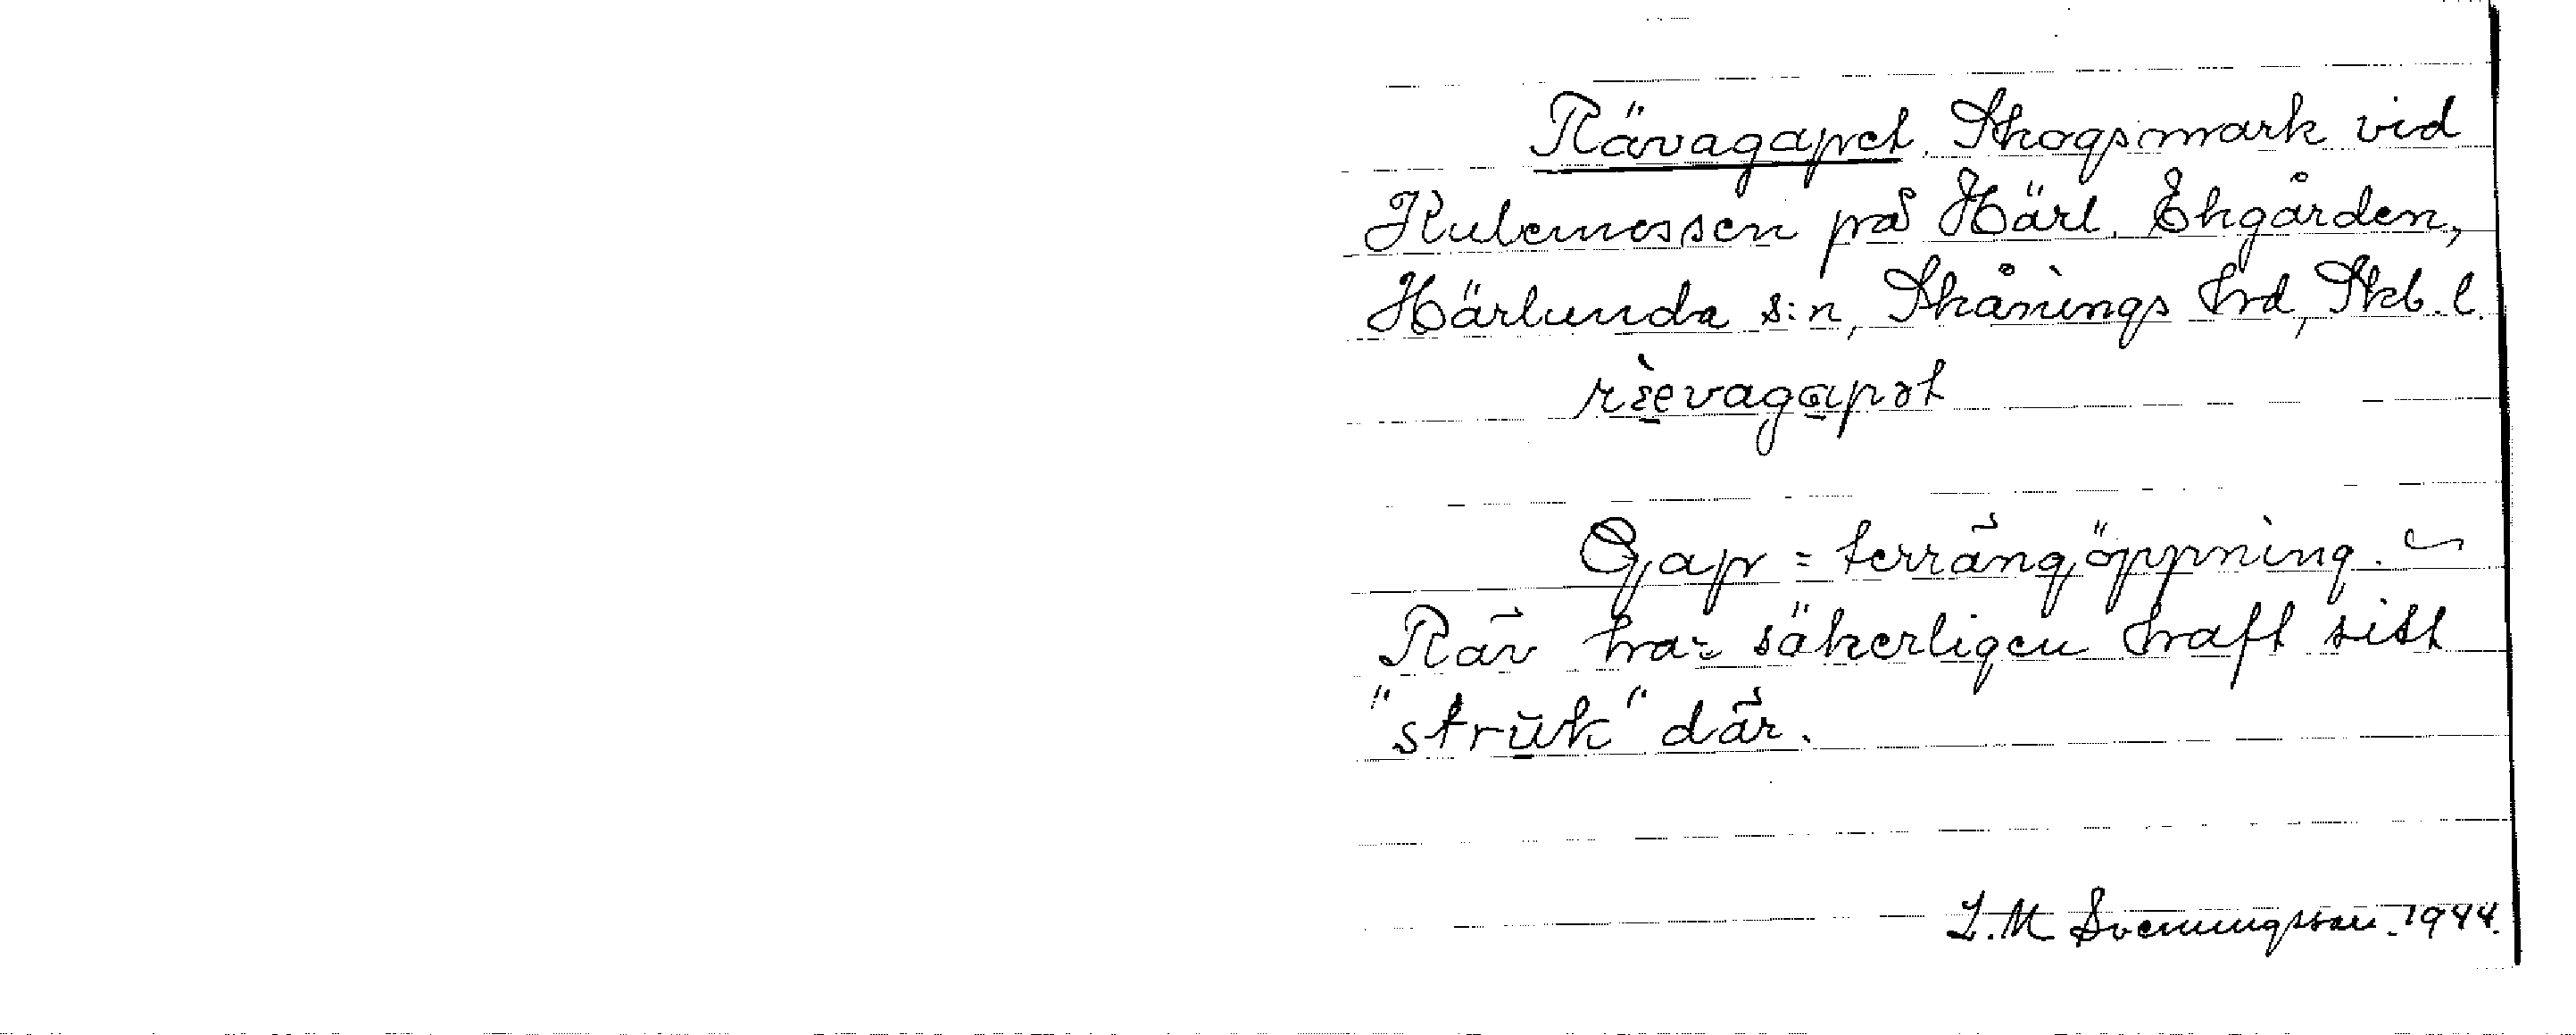 Rävagapet. Skogsmark vid
Kulemossen på Härl. Ekgården,
Härlunda s:n, Skånings hrd, Skb. l.
rèevagapət
Gap = terrängöppning. ~
Räv har säkerligen haft sitt
"strŭk" där.
L. M. Svenningsson. 1944.